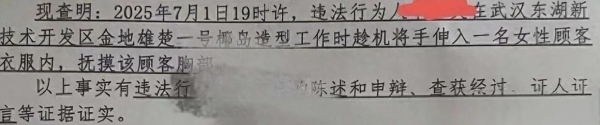 现查明：2025年7月1日19时许，违法行为人 在武汉东湖新
技术开发区金地雄楚一号椰岛造型工作时趁机将手伸入一名女性顾客
衣服内，抚摸该顾客胸部
以上事实有违法行 的陈述和申辩、查获经过、证人证
言等证据证实。